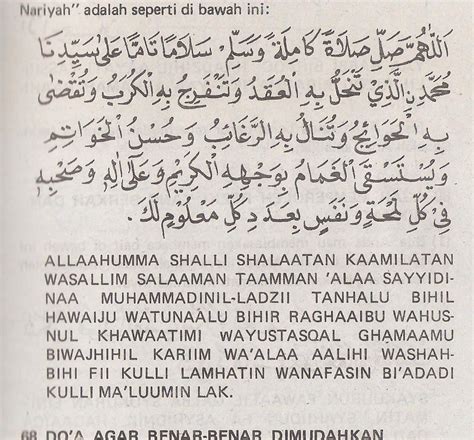 Nariyah" adalah seperti di bawah ini:
اَللّٰهُمَّ صَلِّ صَلَاةً كَامِلَةً وَسَلِّمْ سَلَامًا تَامًّا عَلَى سَيِّدِنَا
مُحَمَّدِنِ الَّذِيْ تَنْحَلُّ بِهِ الْعُقَدُ وَتَنْفَرِجُ بِهِ الْكُرَبُ وَتُقْضٰى
بِهِ الْحَوَائِجُ وَتُنَالُ بِهِ الرَّغَائِبُ وَحُسْنُ الْخَوَاتِمِ
وَيُسْتَسْقَى الْغَمَامُ بِوَجْهِهِ الْكَرِيْمِ وَعَلٰى اٰلِهِ وَصَحْبِهِ
فِيْ كُلِّ لَمْحَةٍ وَنَفَسٍ بِعَدَدِ كُلِّ مَعْلُوْمٍ لَكَ.
ALLAAHUMMA SHALLI SHALAATAN KAAMILATAN
WASALLIM SALAAMAN TAAMMAN 'ALAA SAYYIDI-
NAA MUHAMMADINIL-LADZII TANHALU BIHIL
HAWAIJU WATUNAALU BIHIR RAGHAAIBU WAHUS-
NUL KHAWAATIMI WAYUSTASQAL GHAMAAMU
BIWAJHIHIL KARIIM WA'ALAA AALIHI WASHAH-
BIHI FII KULLI LAMHATIN WANAFASIN BI'ADADI
KULLI MA'LUUMIN LAK.
68 DO'A AGAR BENAR-BENAR DIMUDAHKAN